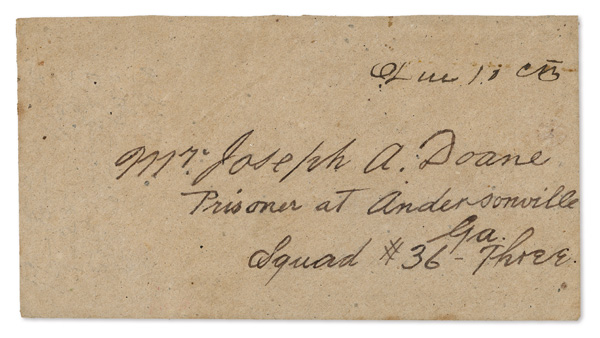 Due 10 cts
Mr. Joseph A. Doane
Prisoner at Andersonville
Ga.
Squad #36 - Three.